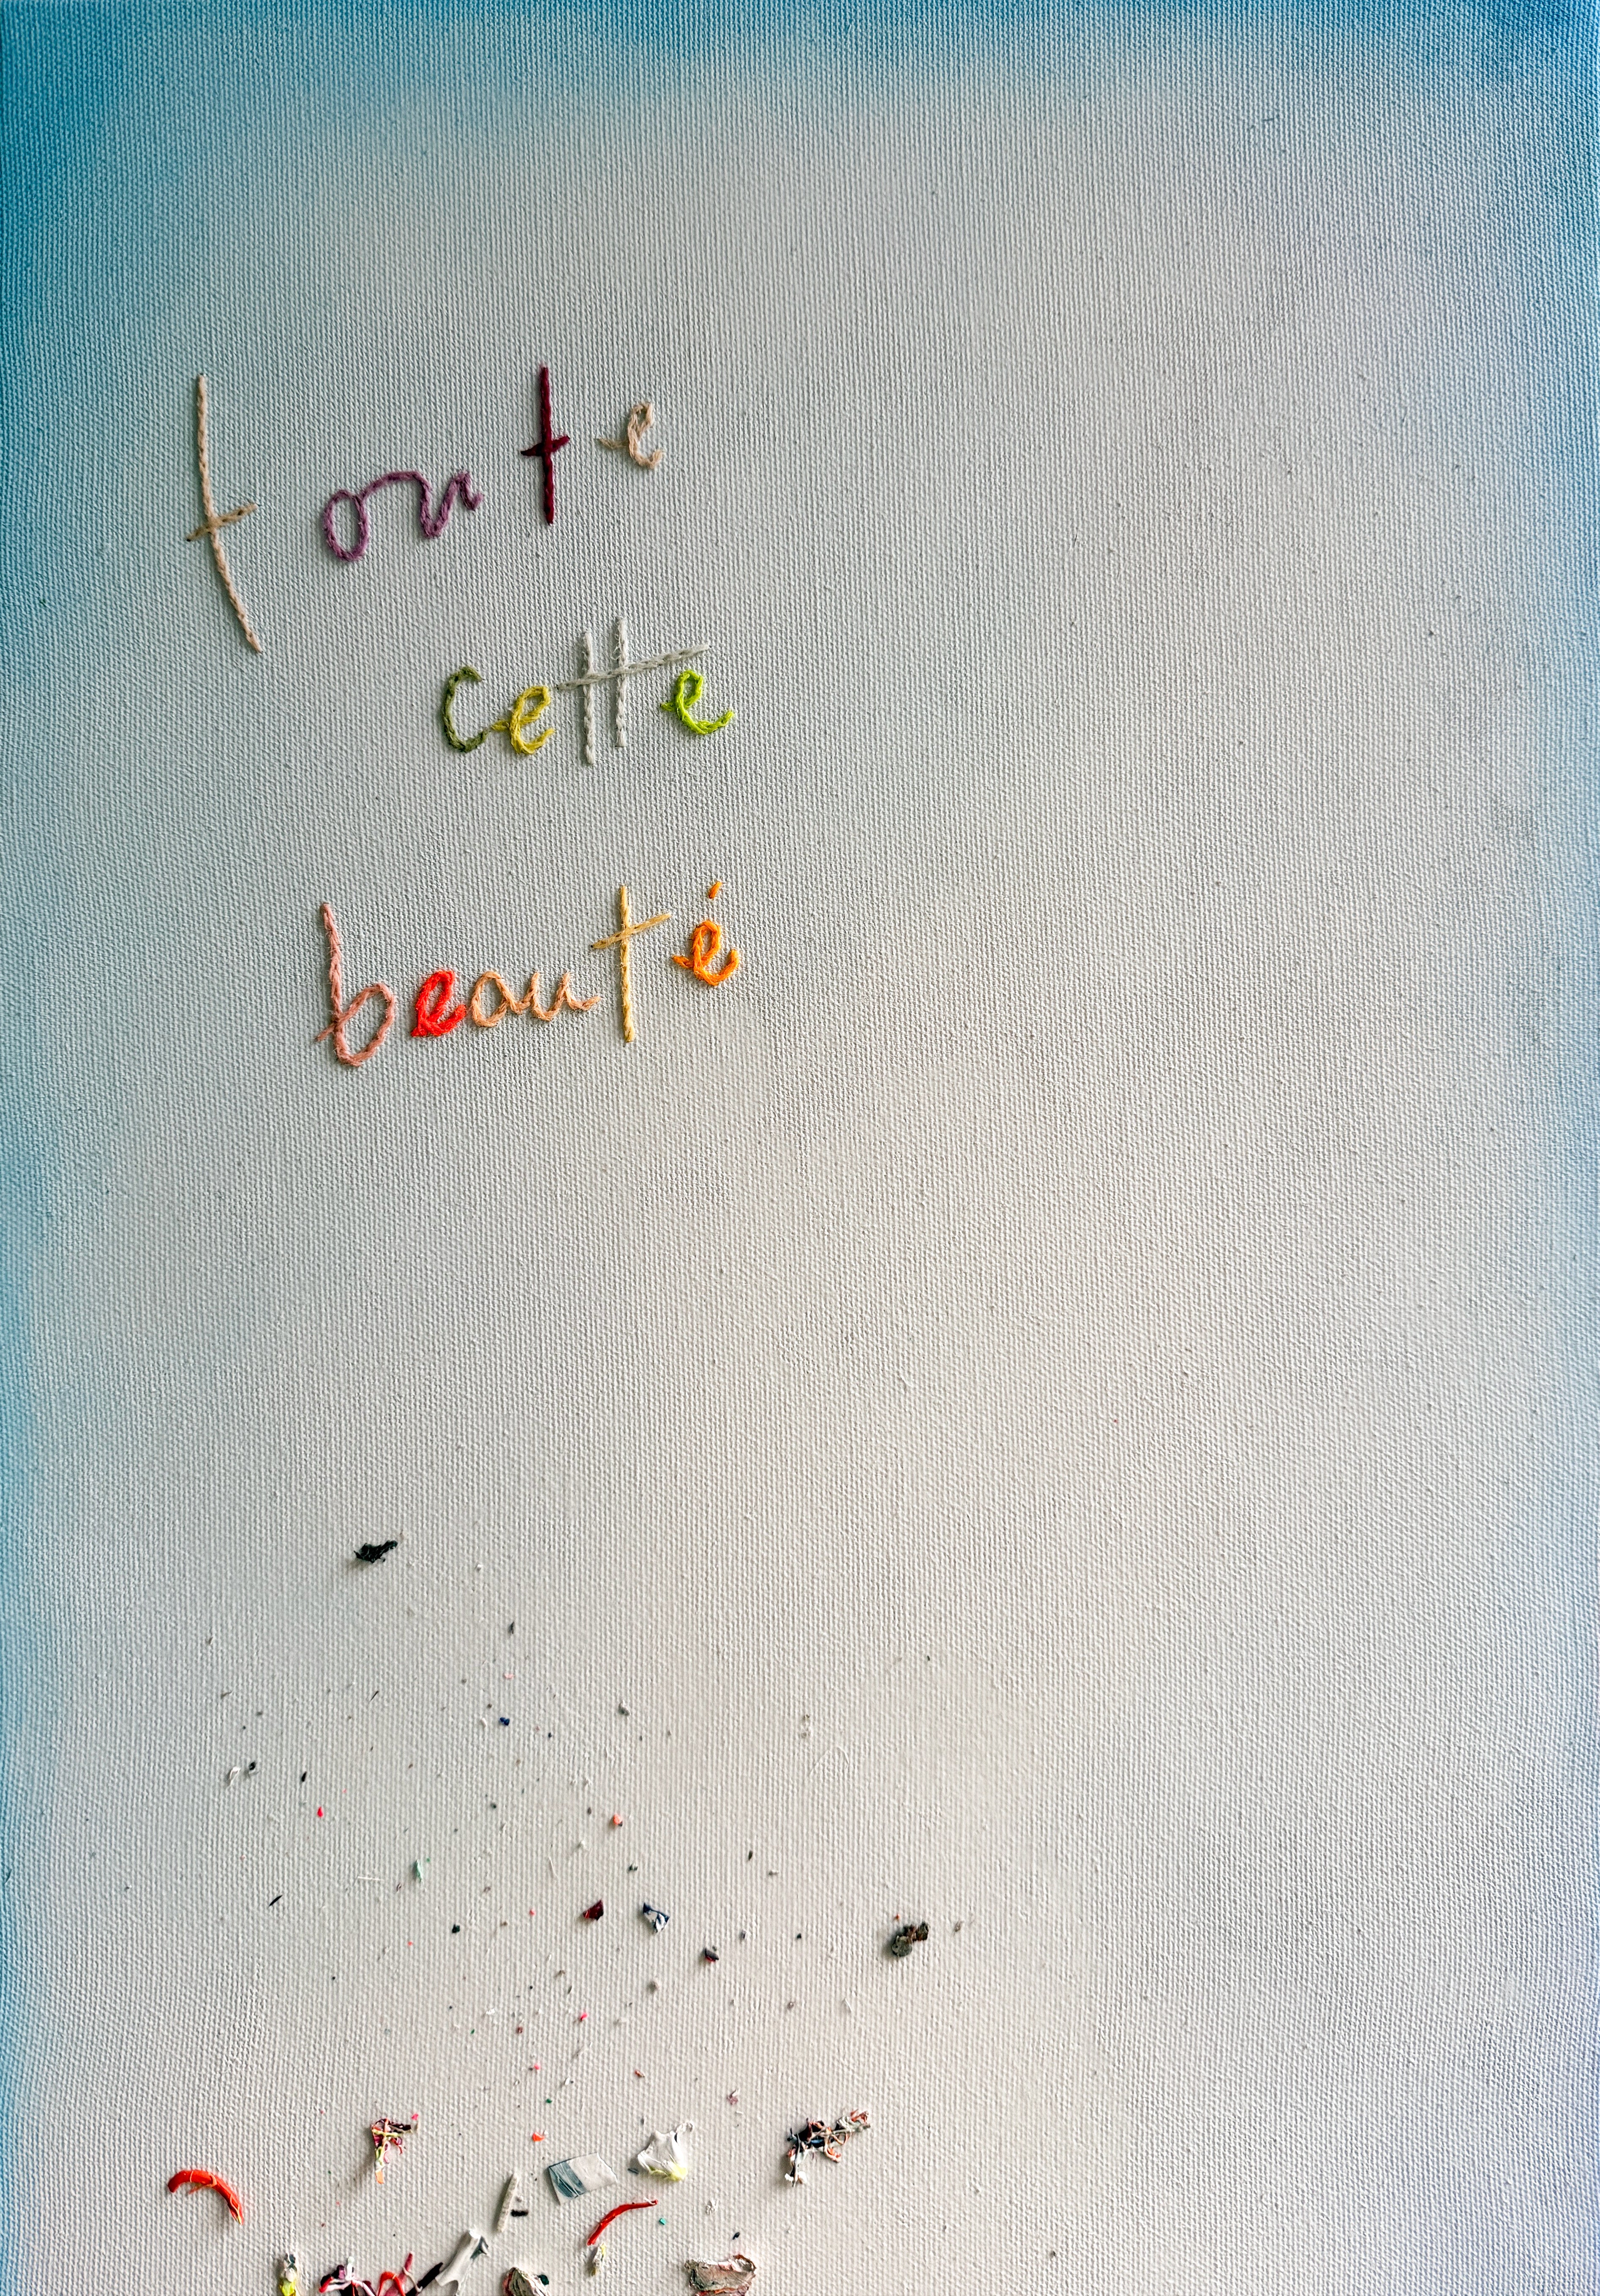 toute
cette
beauté